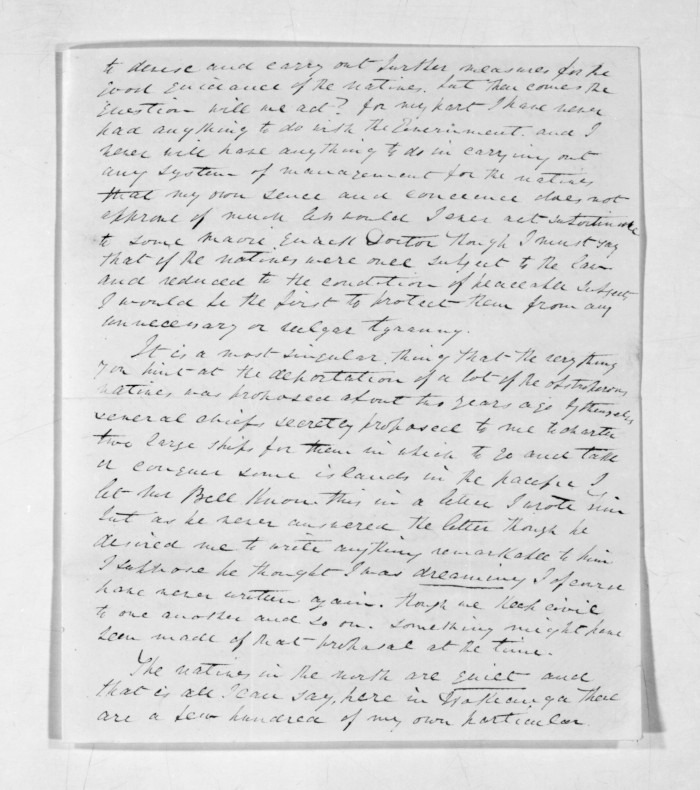 to devise and carry out further measures for the
good guidance of the natives, but then comes the
question will we act? for my part I have never
had anything to do with the Government and I
never will have anything to do in carrying out
any system of management for the natives
that my own sence and concience does not
approve of much less would I ever act subordinate
to some maori Quack Doctor though I must say
that if the natives were once subject to the law
and reduced to the condition of peaceable subjects
I would be the first to protect them from any
unnecessary or vulgar tyranny.
It is a most singular thing that the very thing
you hint at the deportation of a lot of the obstroperous
natives was proposed about two years ago by themselves
several chiefs secretly proposed to me to charter
two large ships for them in which to go and take
or conquer some islands in the pacific I
let Mr Bell Know this in a letter I wrote him
but as he never answered the letter though he
desired me to write anything remarkable to him
I suppose he thought I was dreaming I of course
have never written again. though we Keep civil
to one another and so on. something might have
been made of that proposal at the time.
The natives in the north are quiet and
that is all I can say, here in Hokianga there
are a few hundred of my own particular